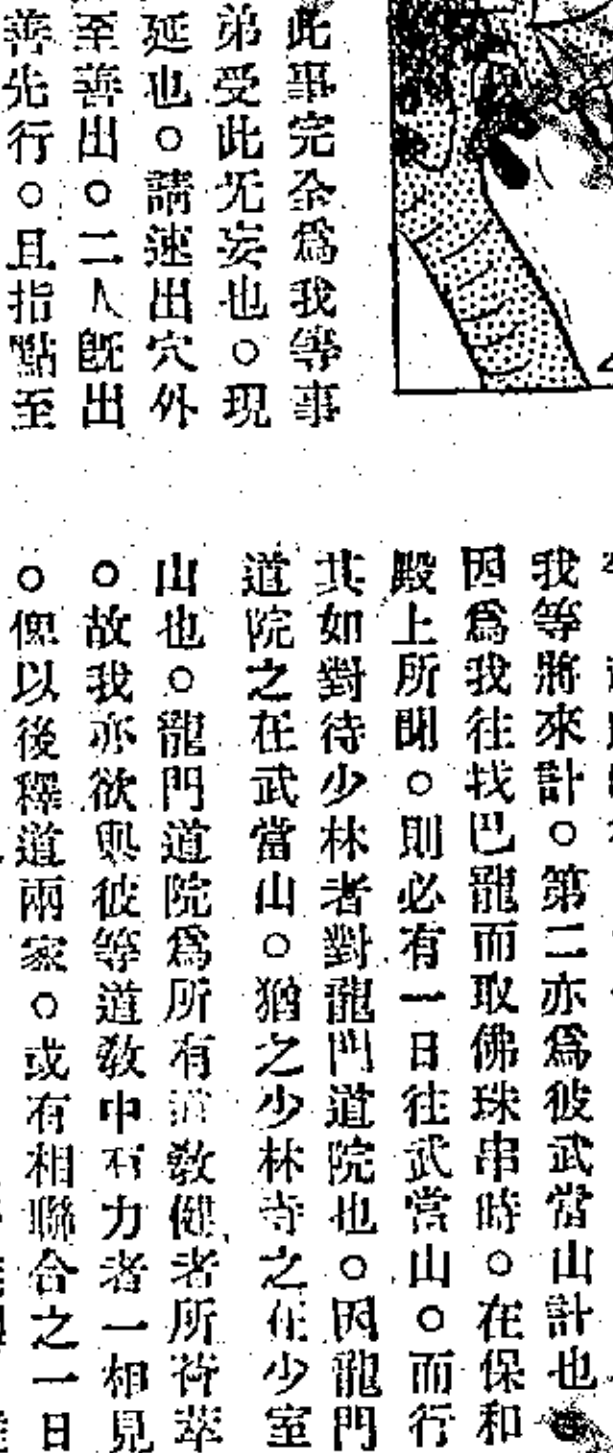 此事完全爲我等事
弟受此无妄也。現
延也。請速出穴外
至善出。二人既出
善先行。且指點至
我等將來計。第二亦爲彼武當山計也
因爲我往找巴龍而取佛珠串時。在保和
殿上所聞。則必有一日往武當山。而行
其如對待少林者對龍門道院也。因龍門
道院之在武當山。猶之少林寺之在少室
山也。龍門道院爲所有道敎健者所薈萃
。故我亦欲與彼等道敎中有力者一相見
。俾以後釋道兩家。或有相聯合之一日